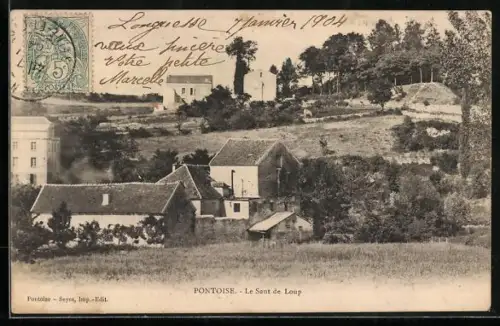 Longuesse 7 Janvier 1904
vœux sincère
Votre petite
Marcelle
5
PONTOISE. - Le Saut de Loup
Pontoise - Seyes, Imp.-Edit.